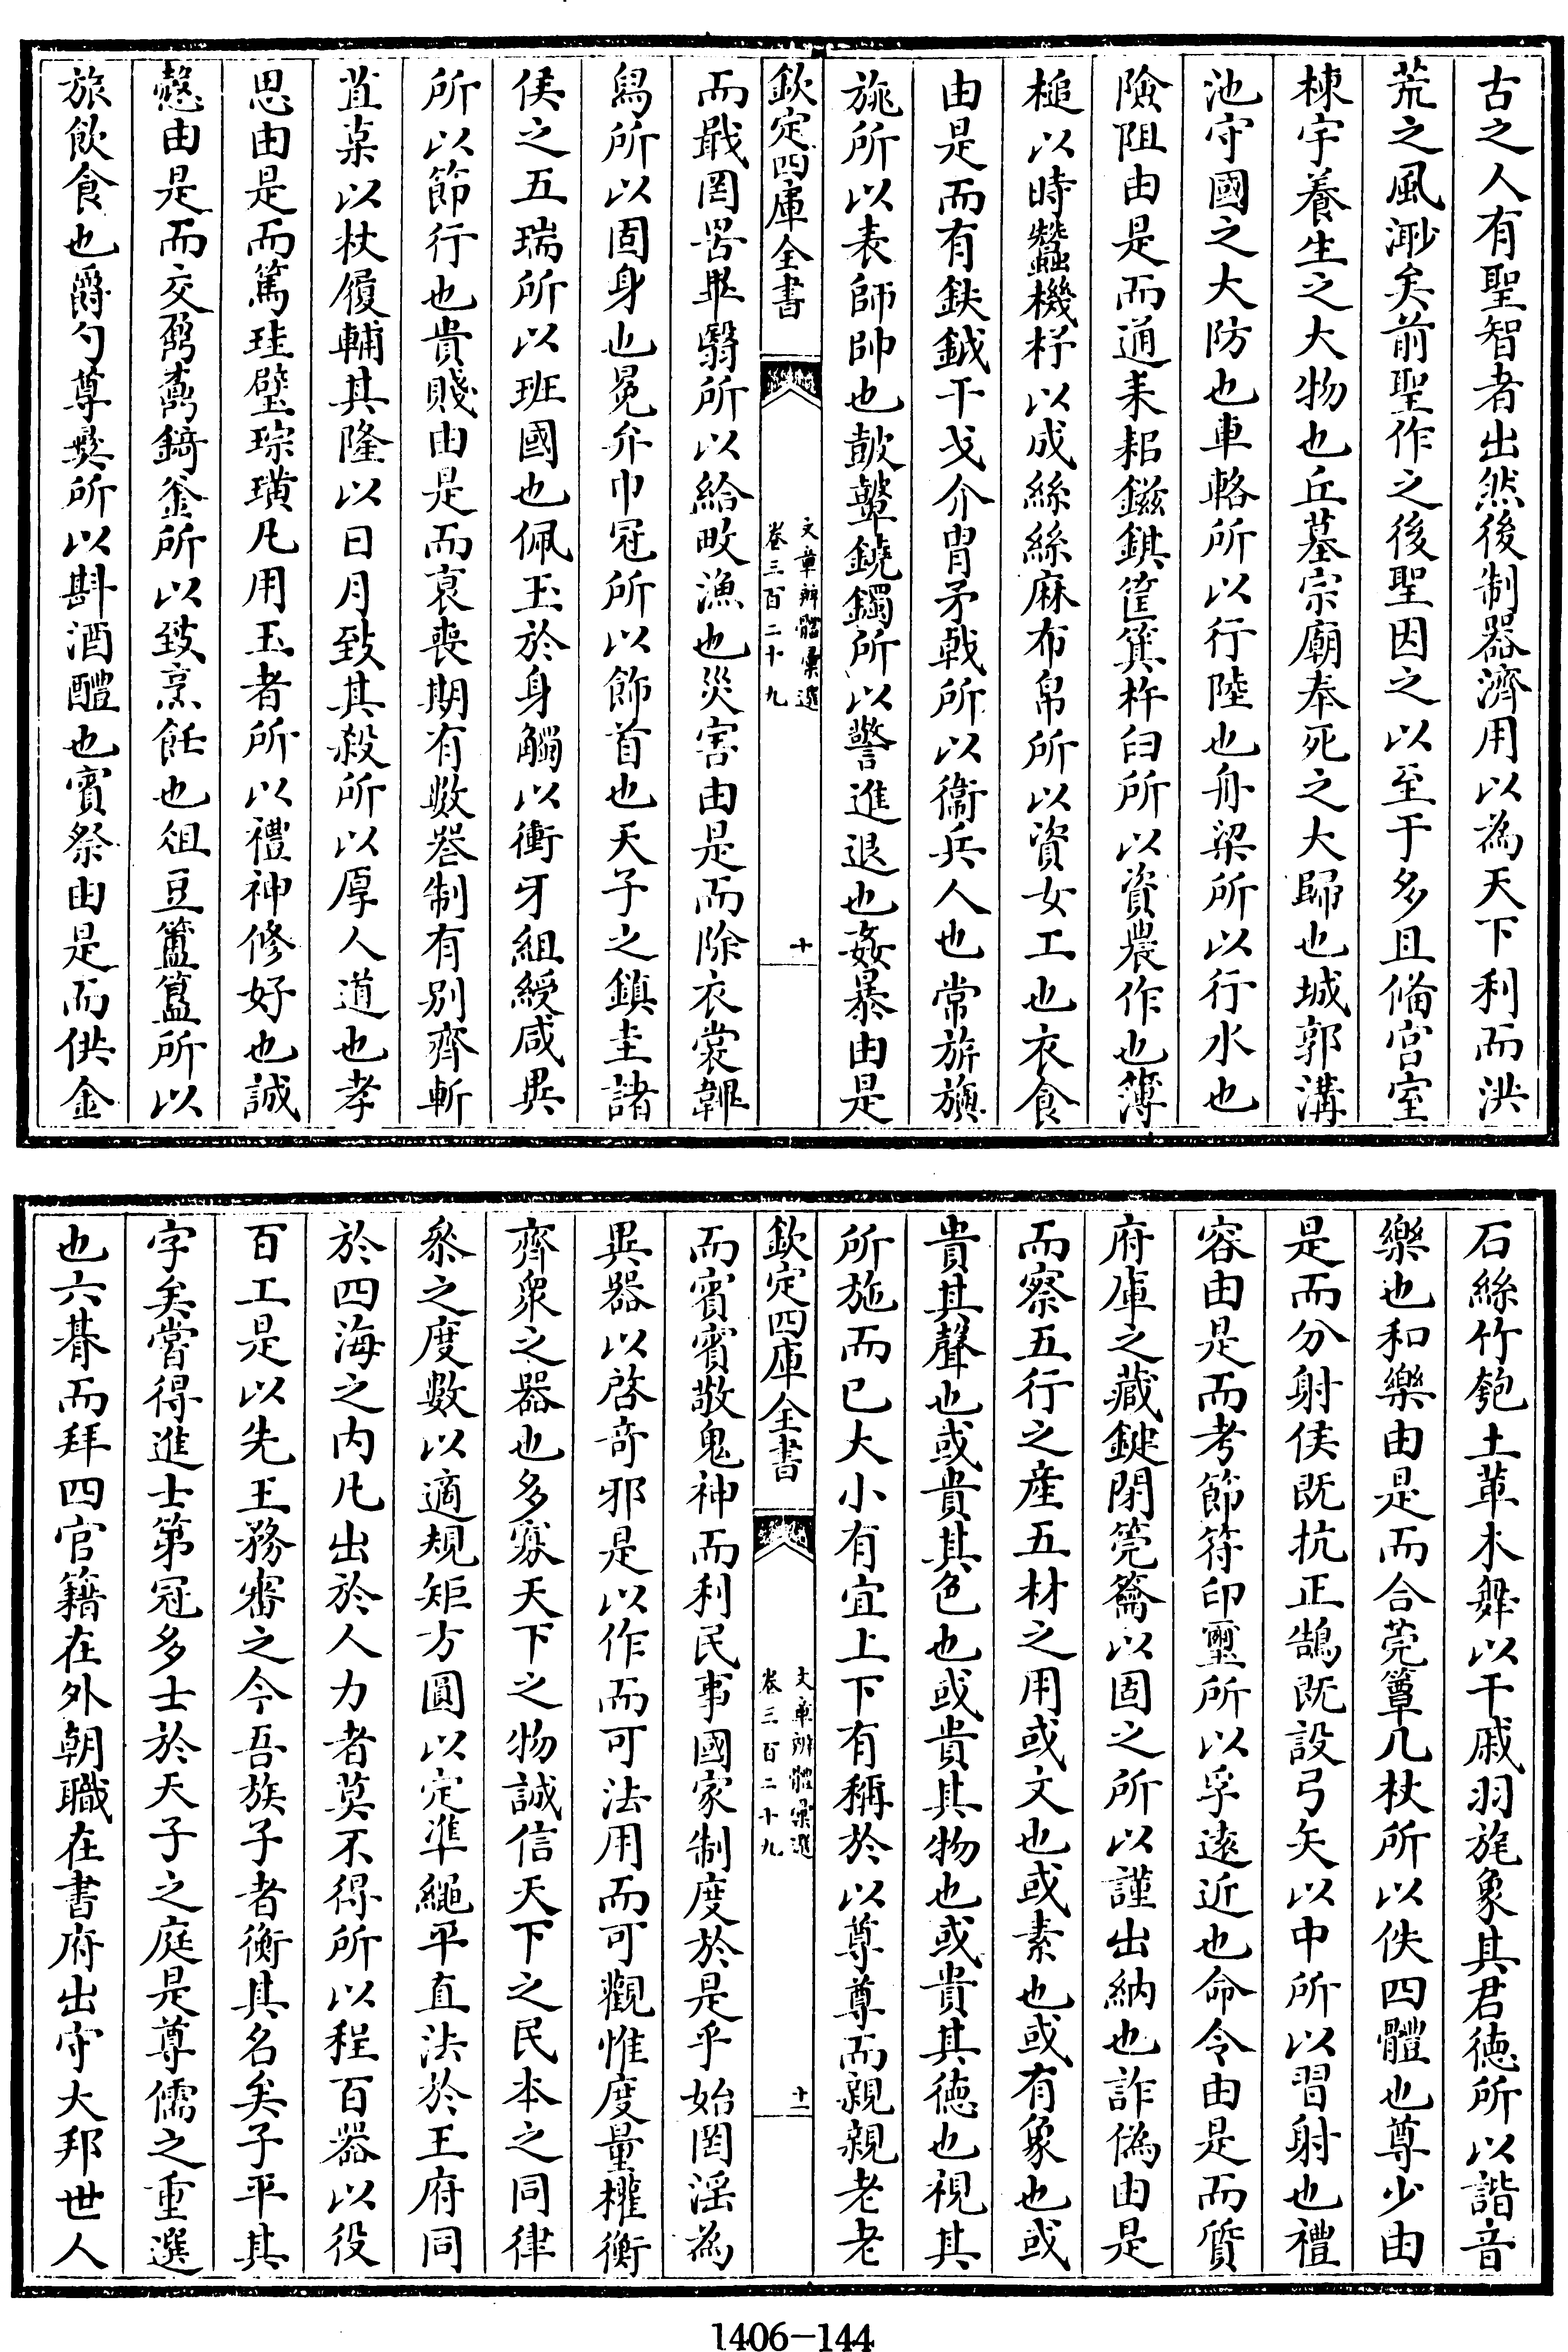 古之人有聖智者出然後制器濟用以為天下利而洪
荒之風渺矣前聖作之後聖因之以至于多且備宫室
棟宇養生之大物也丘墓宗廟奉死之大歸也城郭溝
池守國之大防也車輅所以行陸也舟梁所以行水也
險阻由是而通耒耜鎡錤筐箕杵臼所以資農作也簿
槌以時蠶機杼以成絲絲麻布帛所以資女工也衣食
由是而有鈇鉞干戈介胄矛戟所以衞兵人也常旂旟
旐所以表師帥也鼓鼙鐃鐲所以警進退也姦暴由是
欽定四庫全書
文章辨體彙選
卷三百二十九
十
而戢罔罟畢翳所以給畋漁也災害由是而除衣裳鞸
舄所以固身也冕弁巾冠所以飾首也天子之鎮圭諸
侯之五瑞所以班國也佩玉於身觿以衝牙組綬咸異
所以節行也貴賤由是而衰喪期有數器制有别齊斬
苴枲以杖履輔其隆以日月致其殺所以厚人道也孝
思由是而篤珪璧琮璜凡用玉者所以禮神修好也誠
慤由是而交鼐鼒錡釜所以致烹飪也俎豆簠簋所以
旅飲食也爵勺尊彝所以斟酒醴也賓祭由是而供金
石絲竹匏土革木舞以干戚羽旄象其君徳所以諧音
樂也和樂由是而合莞簟几杖所以佚四體也尊少由
是而分射侯既抗正鵠既設弓矢以中所以習射也禮
容由是而考節符印璽所以孚逺近也命令由是而質
府庫之藏鍵閉筦籥以固之所以謹出納也詐偽由是
而察五行之産五材之用或文也或素也或有象也或
貴其聲也或貴其色也或貴其物也或貴其徳也視其
所施而已大小有宜上下有稱於以尊尊而親親老老
欽定四庫全書
文章辨體彙選
卷三百二十九
十一
而賓賓敬鬼神而利民事國家制度於是乎始罔滛為
異器以啓奇邪是以作而可法用而可觀惟度量權衡
齊衆之器也多寡天下之物誠信天下之民本之同律
叅之度數以適規矩方圓以定準繩平直法於王府同
於四海之内凡出於人力者莫不得所以程百器以役
百工是以先王務審之今吾族子者衡其名矣子平其
字矣嘗得進士第冠多士於天子之庭是尊儒之重選
也六朞而拜四官籍在外朝職在書府出守大邦世人
1406-144